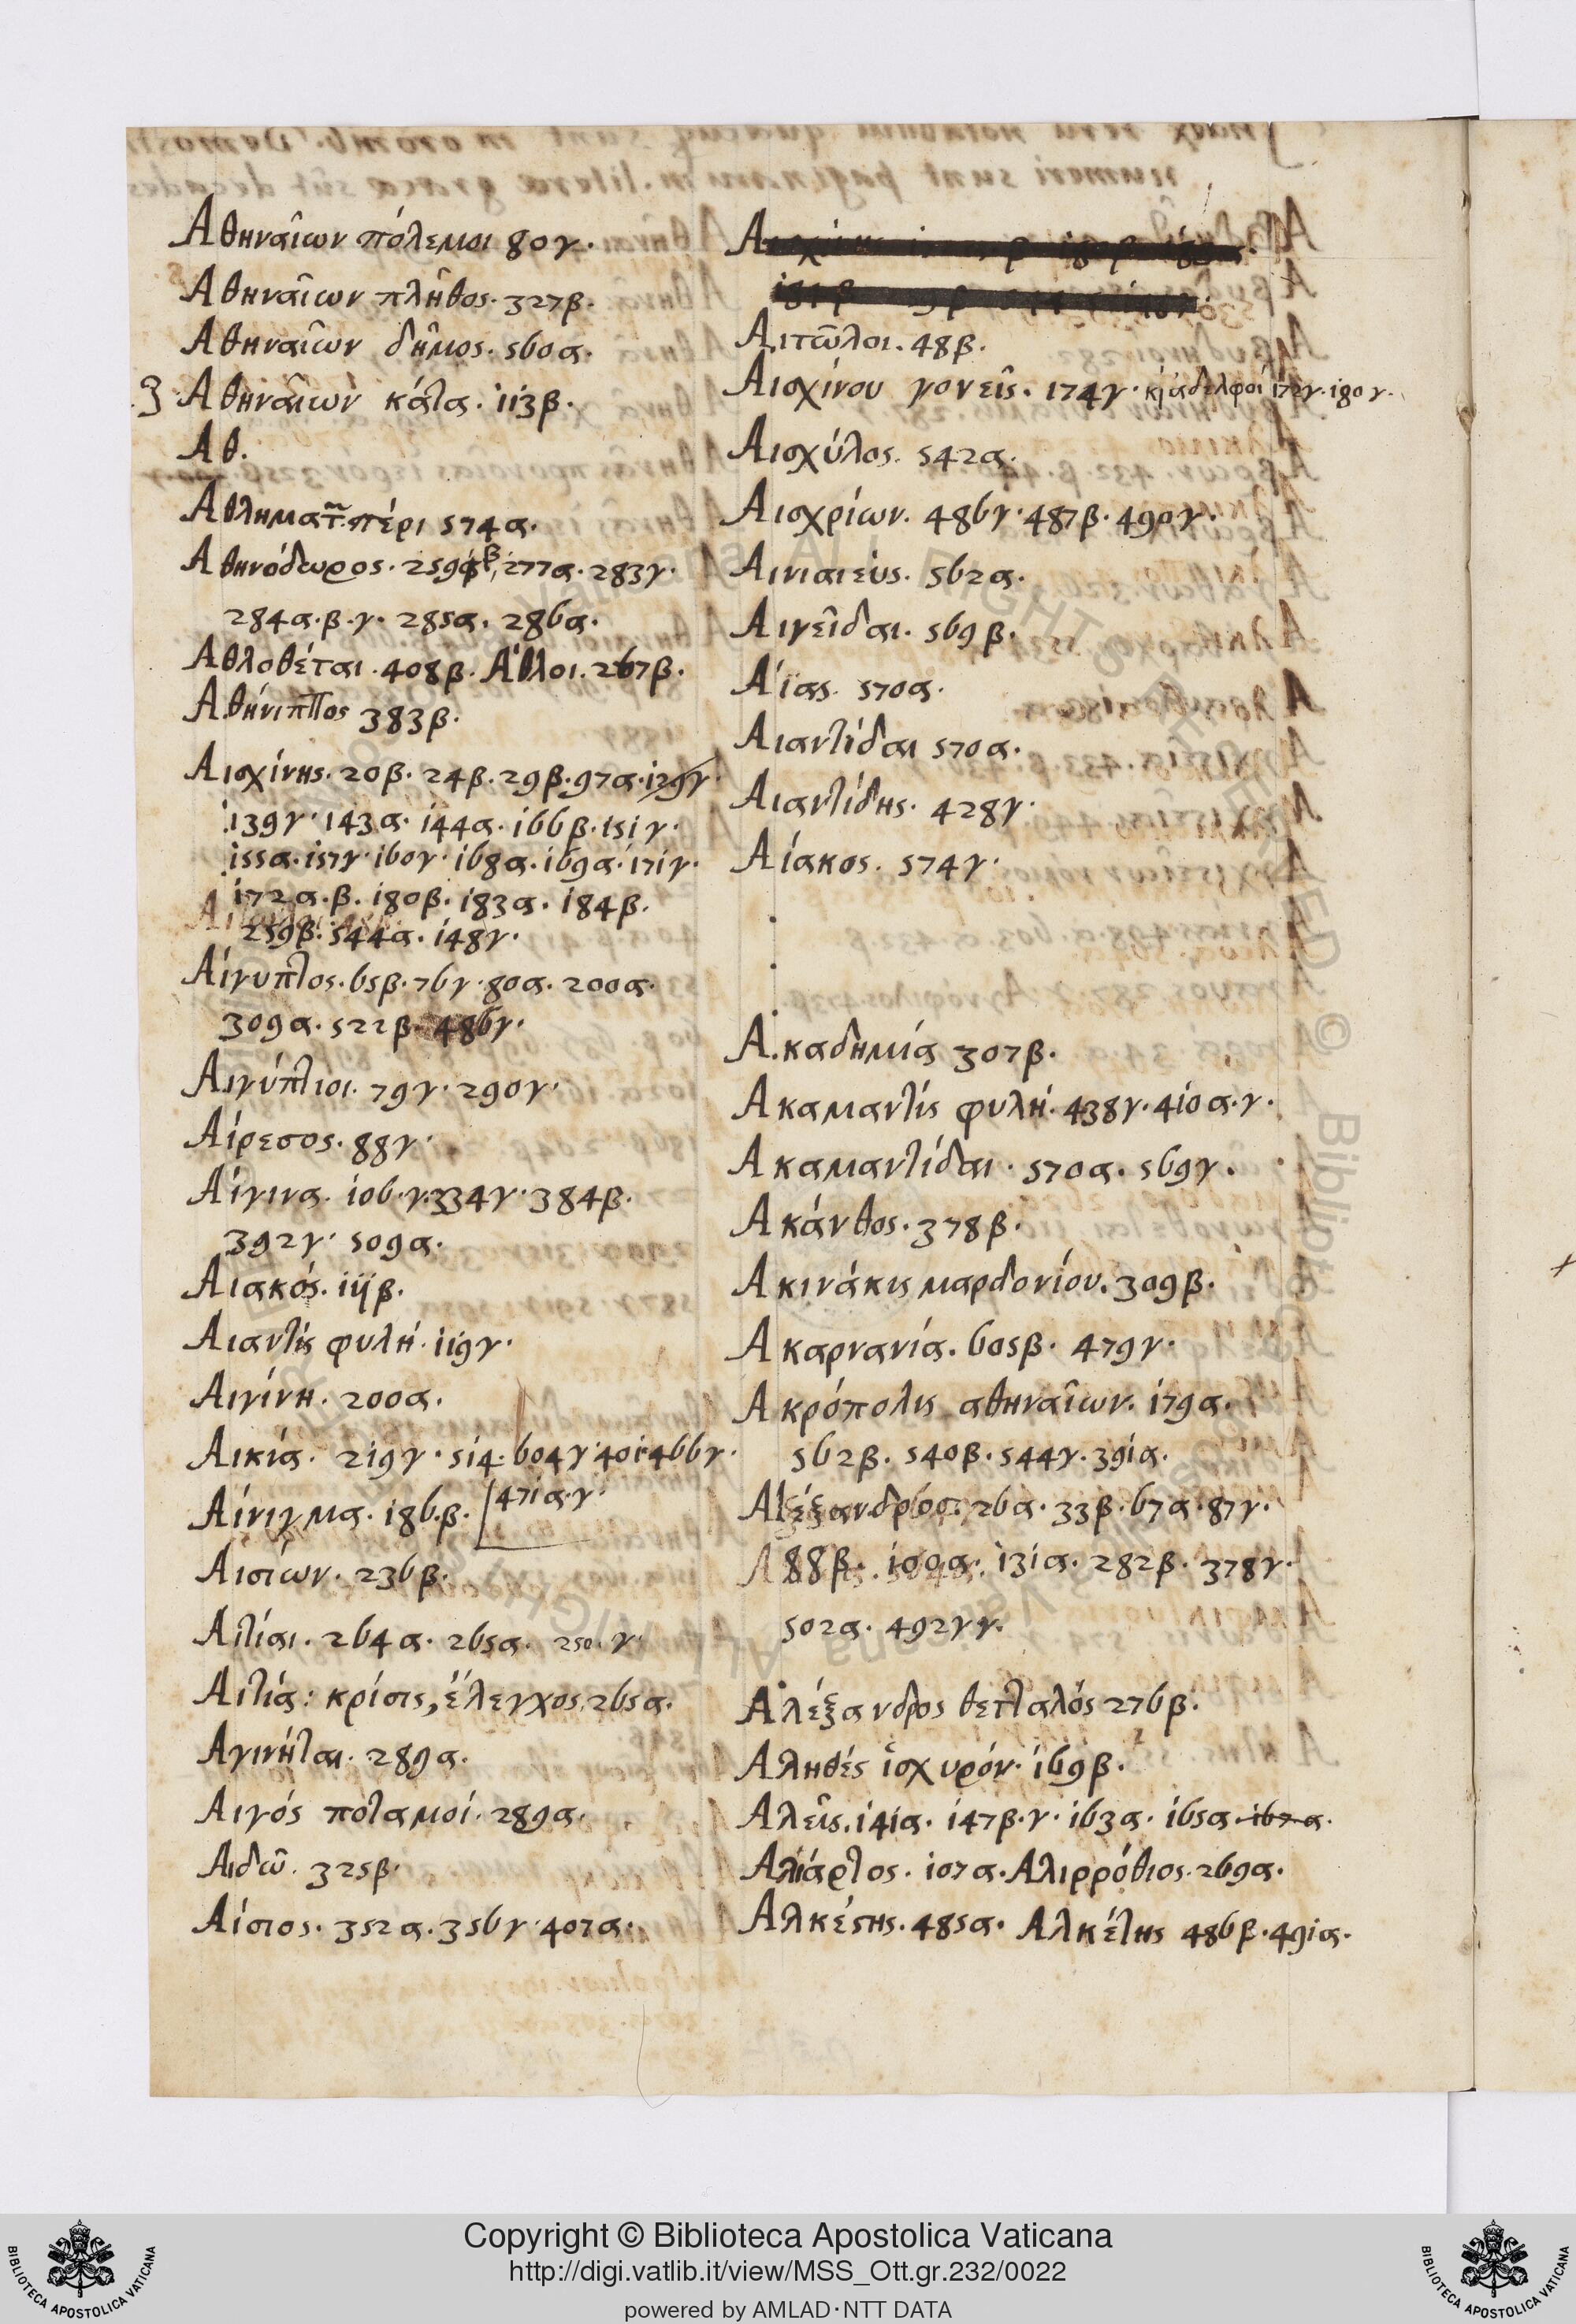 Αθηναίων πόλεμοι 80γ.
Αθηναίων πλῆθος. 327β.
Αθηναίων δῆμος. 560α.
3 Αθηναίων κάτα. 113β.
Αθ.
Αθληματ πέρι 574α.
Αθηνόδωρος. 259 β, 277α. 283γ.
284α.β.γ. 285α. 286α.
Αθλοθέται. 408β. Αθλοι. 267β.
Αθήνιππος 383β.
Αισχίνης. 20β. 24β. 29β. 97α. 129γ.
139γ. 143α. 144α. 166β. 151γ.
155α. 157γ. 160γ. 168α. 169α. 171γ.
172α.β. 180β. 183α. 184β.
259β. 544α. 148γ.
Αίγυπτος. 65β. 76γ. 80α. 200α.
309α. 522β. 486γ.
Αιγύπτιοι. 79γ. 290γ.
Αίρεσος. 88γ.
Αίγινα. 106.γ. 334γ. 384β.
392γ. 509α.
Αιακός. 111β.
Αιαντὶς φυλή. 119γ.
Αιγίνη. 200α.
Αικία. 219γ. 514. 604γ. 401. 466γ.
471α.γ.
Αίνιγμα. 186.β.
Αισίων. 236β.
Αιτίαι. 264α. 265α. 250. γ.
Αιτιά: κρίσις, ἔλεγχος. 265α.
Αγινήται. 289α.
Αιγός ποταμοί. 289α.
Αιδῶ. 325β.
Αίσιος. 352α. 356γ. 407α.
Αιτῶλοι. 48β.
Αισχίνου γονεῖς. 174γ. κὶ ἀδελφοί 172γ. 180γ.
Αισχύλος. 542α.
Αισχρίων. 486γ. 487β. 490γ.
Αινιαιεύς. 562α.
Αιγεῖδαι. 569β.
Αίας. 570α.
Αιαντίδαι 570α.
Αιαντίδης. 428γ.
Αίακος. 574γ.
Ακαδημία 307β.
Ακαμαντίς φυλή. 438γ. 410α.γ.
Ακαμαντίδαι. 570α. 569γ.
Ακάνθος. 378β.
Ακινάκις μαρδονίου. 309β.
Ακαρνανία. 605β. 479γ.
Ακρόπολις αθηναίων. 179α.
562β. 540β. 544γ. 391α.
Αλέξανδρος. 26α. 33β. 67α. 87γ.
88β. 100α. 131α. 282β. 378γ.
502α. 492γγ.
Αλέξανδρος θετταλός 276β.
Αληθές ἰσχυρόν. 169β.
Αλεῖς. 141α. 147β.γ. 163α. 165α. 167α.
Αλιάρτος. 107α. Αλιρρόθιος. 269α.
Αλκέσης. 485α. Αλκέτης 486β. 491α.
Copyright © Biblioteca Apostolica Vaticana
http://digi.vatlib.it/view/MSS_Ott.gr.232/0022
powered by AMLAD·NTT DATA
BIBLIOTECA APOSTOLICA VATICANA
BIBLIOTECA APOSTOLICA VATICANA